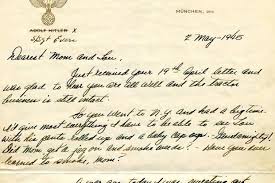 ADOLF HITLER X
MÜNCHEN, DEN
Sgt Evers
2 May - 1945
Dearest Mom and Lou,
Just received your 19th April letter and
was glad to hear you are all well and the tractor
business is still intact.
So you went to N.Y and had a big time.
I'd give most everything I have to be able to see Lou
with his pants rolled up and a baby cap on
Did Mom get a jag on and smoke weeds? Have you ever
learned to smoke, Mom?